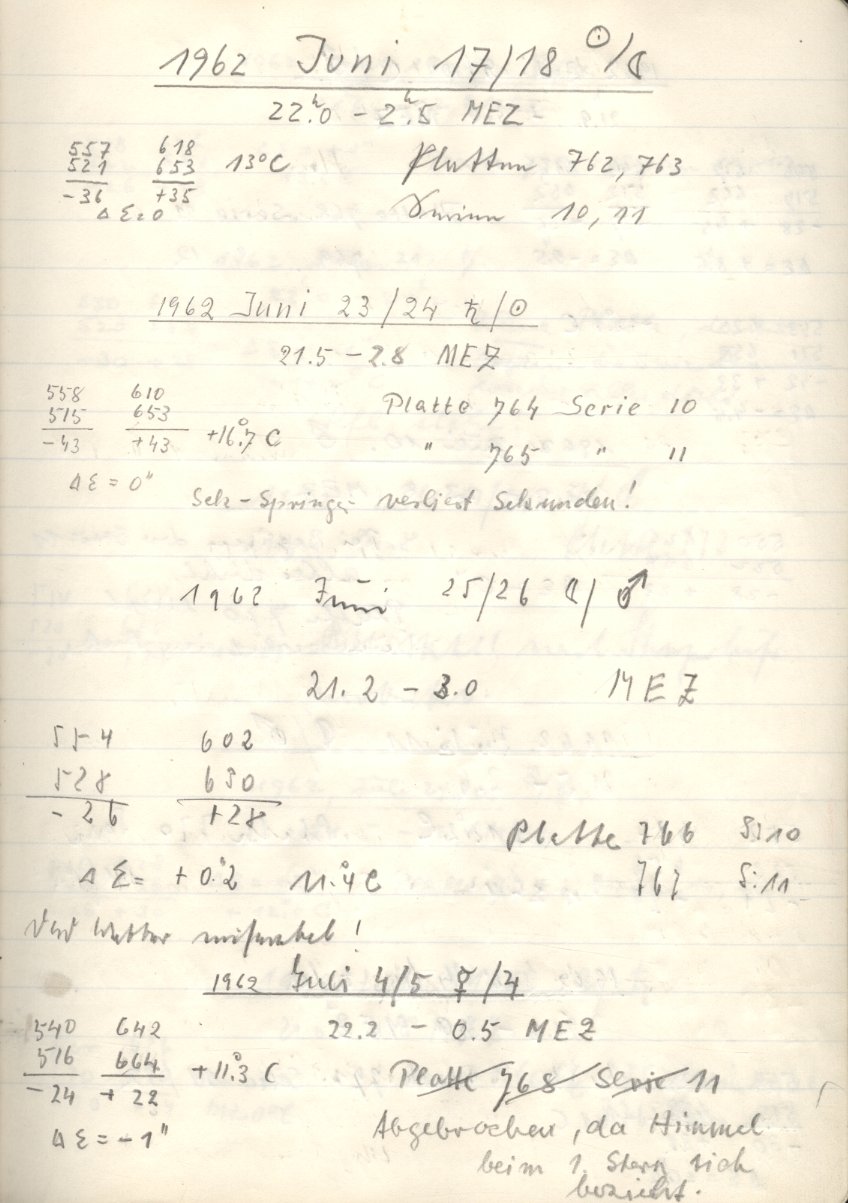 1962 Juni 17/18 ☉/☾
22ʰ.0 – 2ʰ.5 MEZ
557 618
521 653 13°C Platten 762, 763
-36 +35
Δ Σ = 0 Serien 10, 11
1962 Juni 23/24 ♄/☉
21.5 – 2.8 MEZ
558 610
515 653 Platte 764 Serie 10
-43 +43 +16°.7 C
" 765 " 11
Δ Σ = 0"
Sek-Springer verliert Sekunden!
1962 Juni 25/26 ☾/♂
21.2 – 3.0 MEZ
554 602
528 630
-26 +28
Platte 766 S: 10
Δ Σ = +0".2 11°.4 C 767 S: 11
Das Wetter miserabel!
1962 Juli 4/5 ☿/♃
540 642 22.2 – 0.5 MEZ
516 664 +11°.3 C Platte 768 Serie 11
-24 +22
Δ Σ = -1" Abgebrochen, da Himmel
beim 1. Stern sich
bezieht.